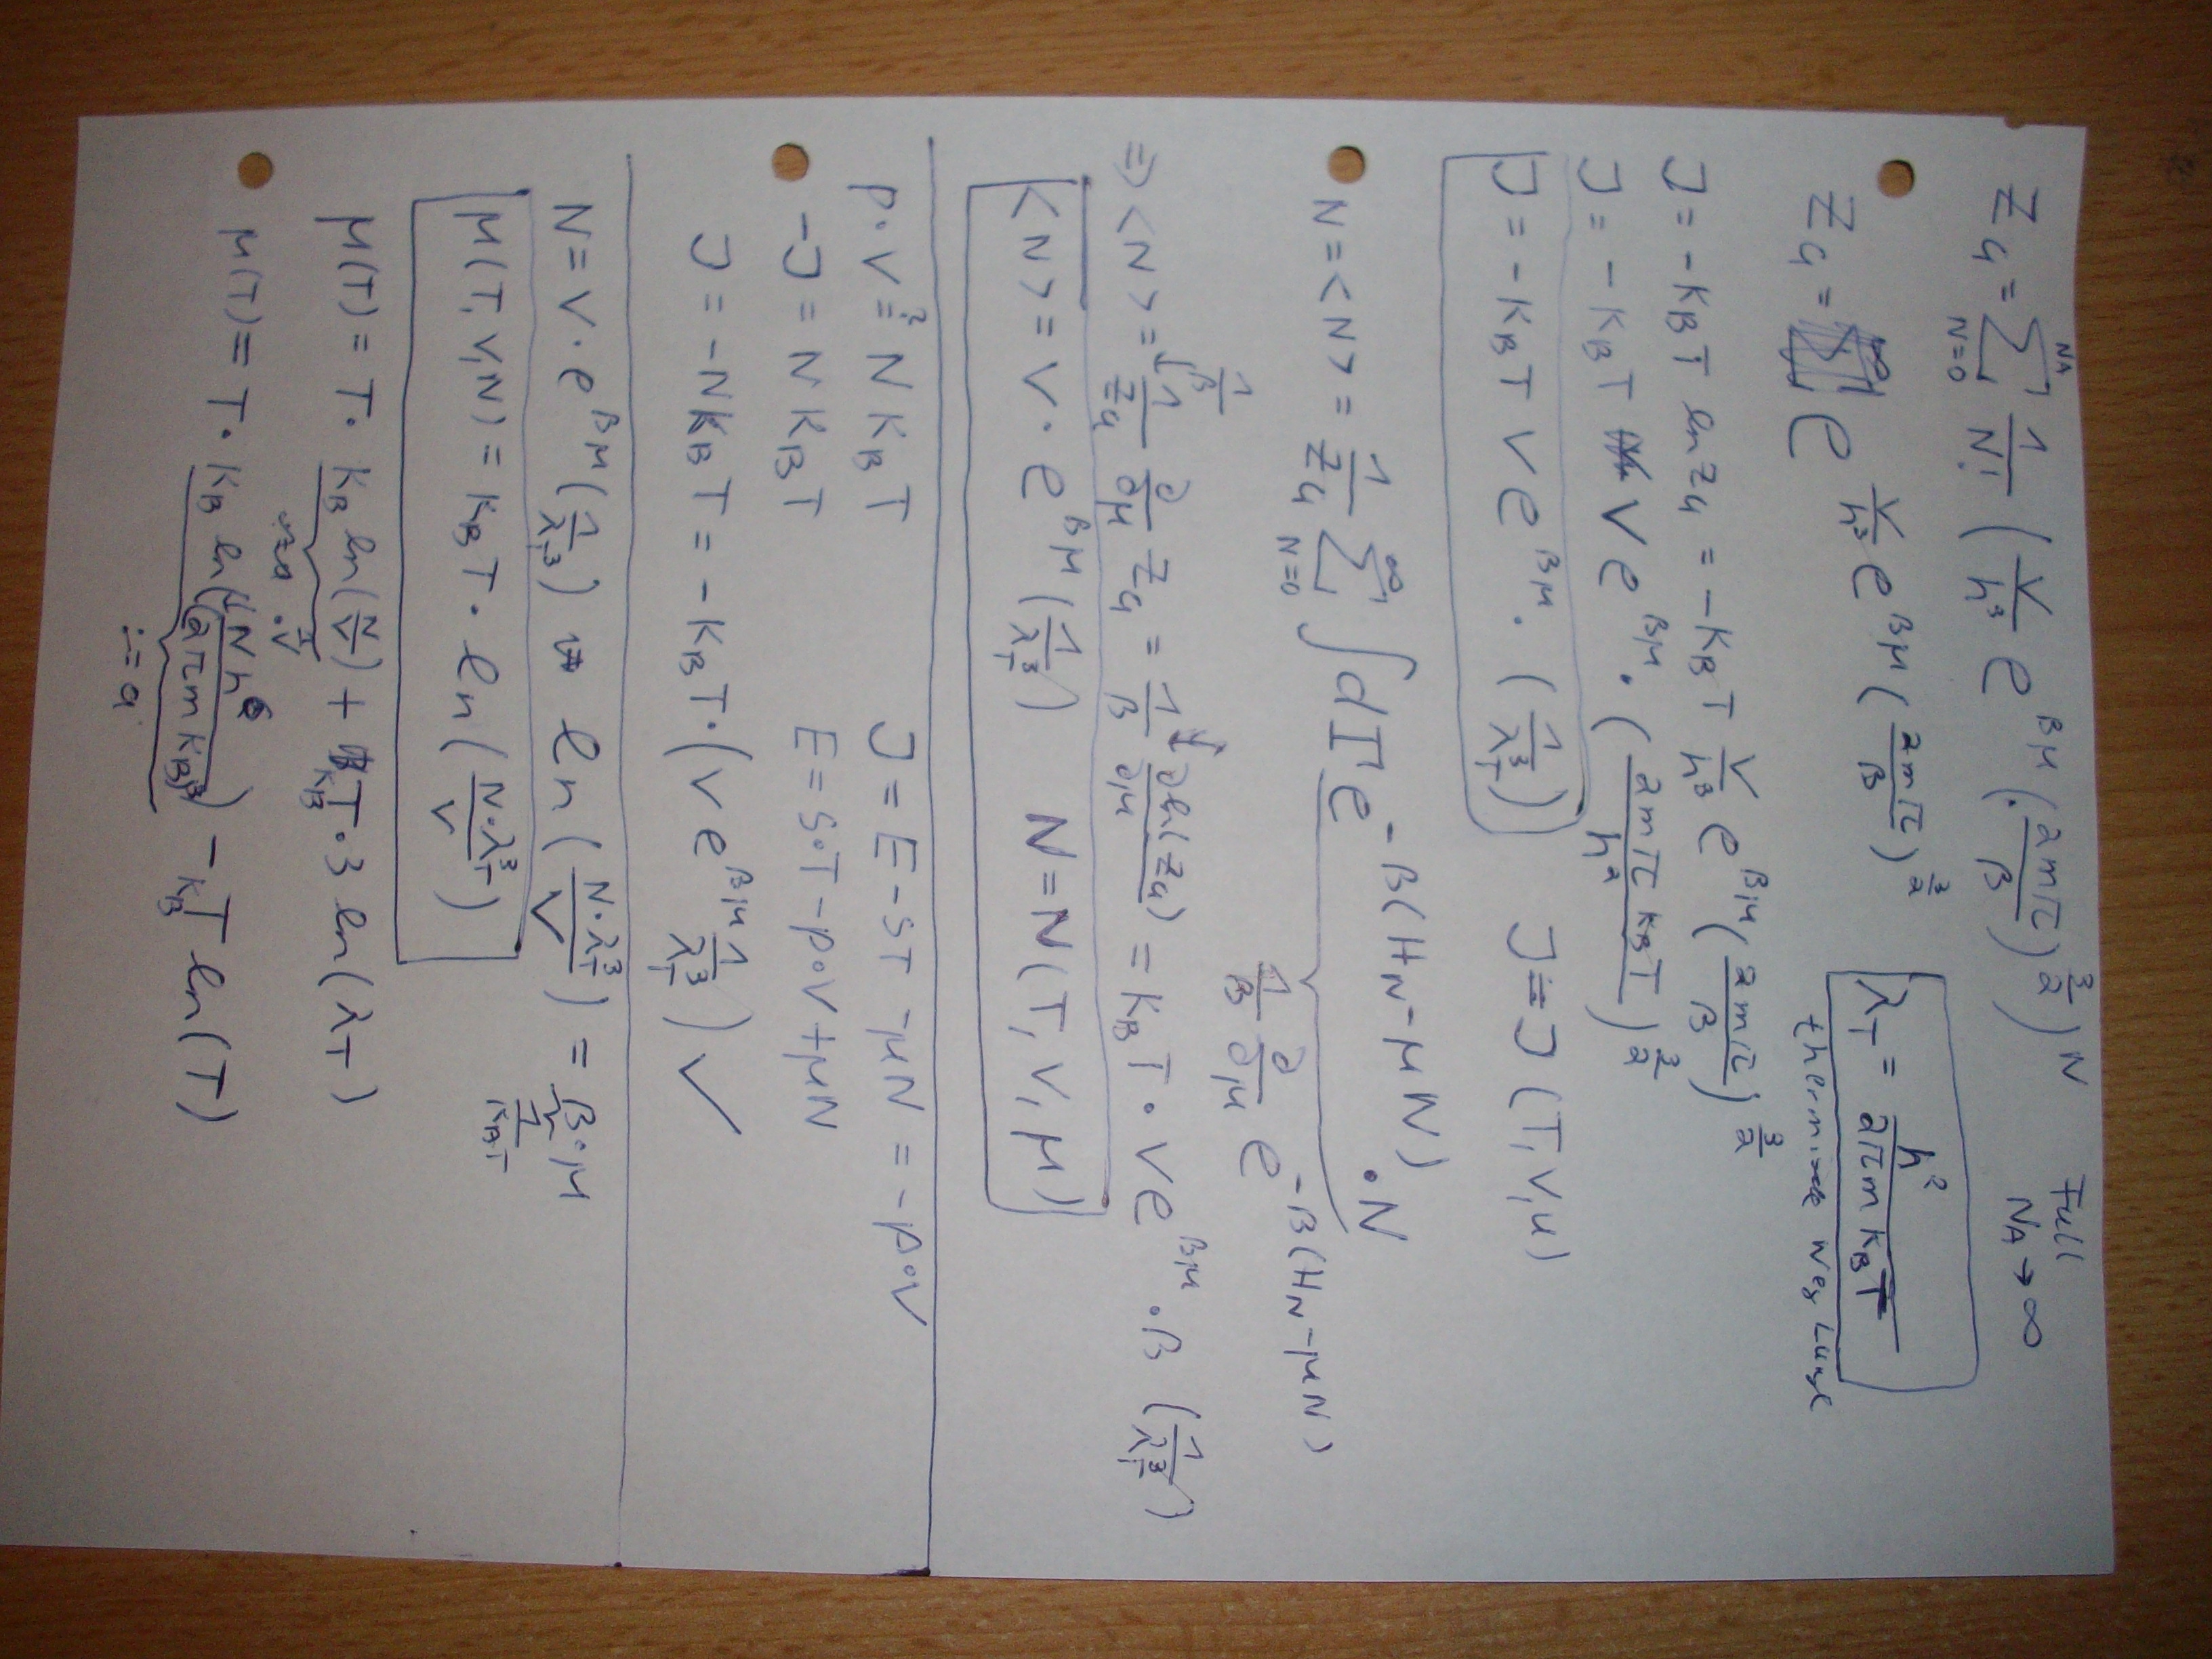 Z_G = ∑_{N=0}^{N_A} 1/N! ( V/h³ e^{βμ} ( 2mπ/β )^{3/2} )^N Full N_A → ∞
Z_G = e^{V/h³ e^{βμ} ( 2mπ/β )^{3/2}} λ_T = h²/(2πmk_BT)
J = -k_BT ln Z_G = -k_BT V/h³ e^{βμ} ( 2mπ/β )^{3/2} thermische Weglänge
J = -k_BT V e^{βμ} · ( 2mπk_BT/h² )^{3/2}
J = -k_BT V e^{βμ} · ( 1/λ_T³ ) J = J(T, V, μ)
N = <N> = 1/Z_G ∑_{N=0}^{∞} ∫ dΓ e^{-β(H_N-μN)} · N
1/β ∂/∂μ e^{-β(H_N-μN)}
=> <N> = 1/β 1/Z_G ∂/∂μ Z_G = 1/β ∂ln(Z_G)/∂μ = k_BT · V e^{βμ} · β ( 1/λ_T³ )
<N> = V · e^{βμ} ( 1/λ_T³ ) N = N(T, V, μ)
p · V ≟ N k_B T J = E - ST - μN = -p·V
-J = N k_B T E = S·T - p·V + μN
J = -N k_B T = -k_B T · ( V e^{βμ} 1/λ_T³ ) ✓
N = V · e^{βμ} ( 1/λ_T³ ) ln( N·λ_T³/V ) = β·μ
1/(k_BT)
μ(T, V, N) = k_B T · ln( N·λ_T³/V )
μ(T) = T · k_B ln( N/V ) + k_B T · 3 ln( λ_T )
μ(T) = T · k_B ln( N h⁶/(2πmk_B)³ ) - k_B T ln(T)
:= a